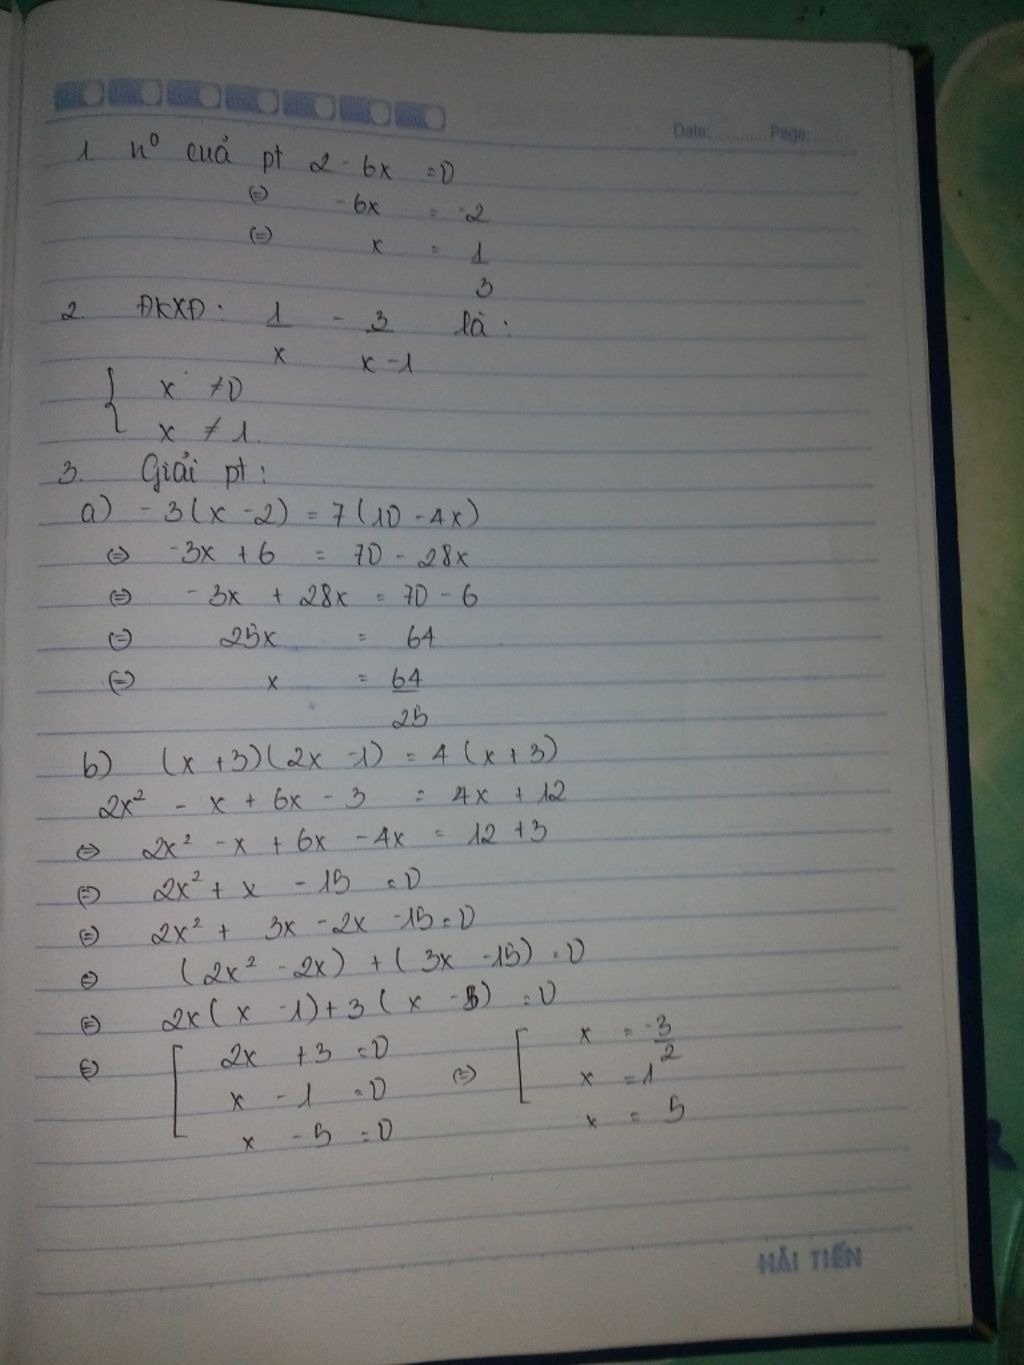 Date:............ Page:........
1. nº cuả pt 2 - 6x = 0
(=) -6x = -2
(=) x = 1/3
2. ĐKXĐ: 1/x - 3/x-1 là:
{ x ≠ 0
x ≠ 1.
3. Giải pt:
a) -3(x - 2) = 7(10 - 4x)
(=) -3x + 6 = 70 - 28x
(=) -3x + 28x = 70 - 6
(=) 25x = 64
(=) x = 64/25
b) (x + 3)(2x - 1) = 4(x + 3)
2x² - x + 6x - 3 = 4x + 12
(=) 2x² - x + 6x - 4x = 12 + 3
(=) 2x² + x - 15 = 0
(=) 2x² + 3x - 2x - 15 = 0
(=) (2x² - 2x) + (3x - 15) = 0
(=) 2x(x - 1) + 3(x - 5) = 0
(=) [ 2x + 3 = 0 (=) [ x = -3/2
x - 1 = 0 x = 1
x - 5 = 0 x = 5
HẢI TIẾN